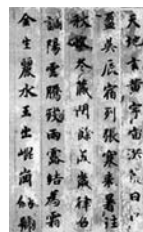 天地玄黃宇宙洪荒日月
盈昃辰宿列張寒來暑往
秋收冬藏閏餘成歲律召
調陽雲騰致雨露結為霜
金生麗水玉出崐崗劍號